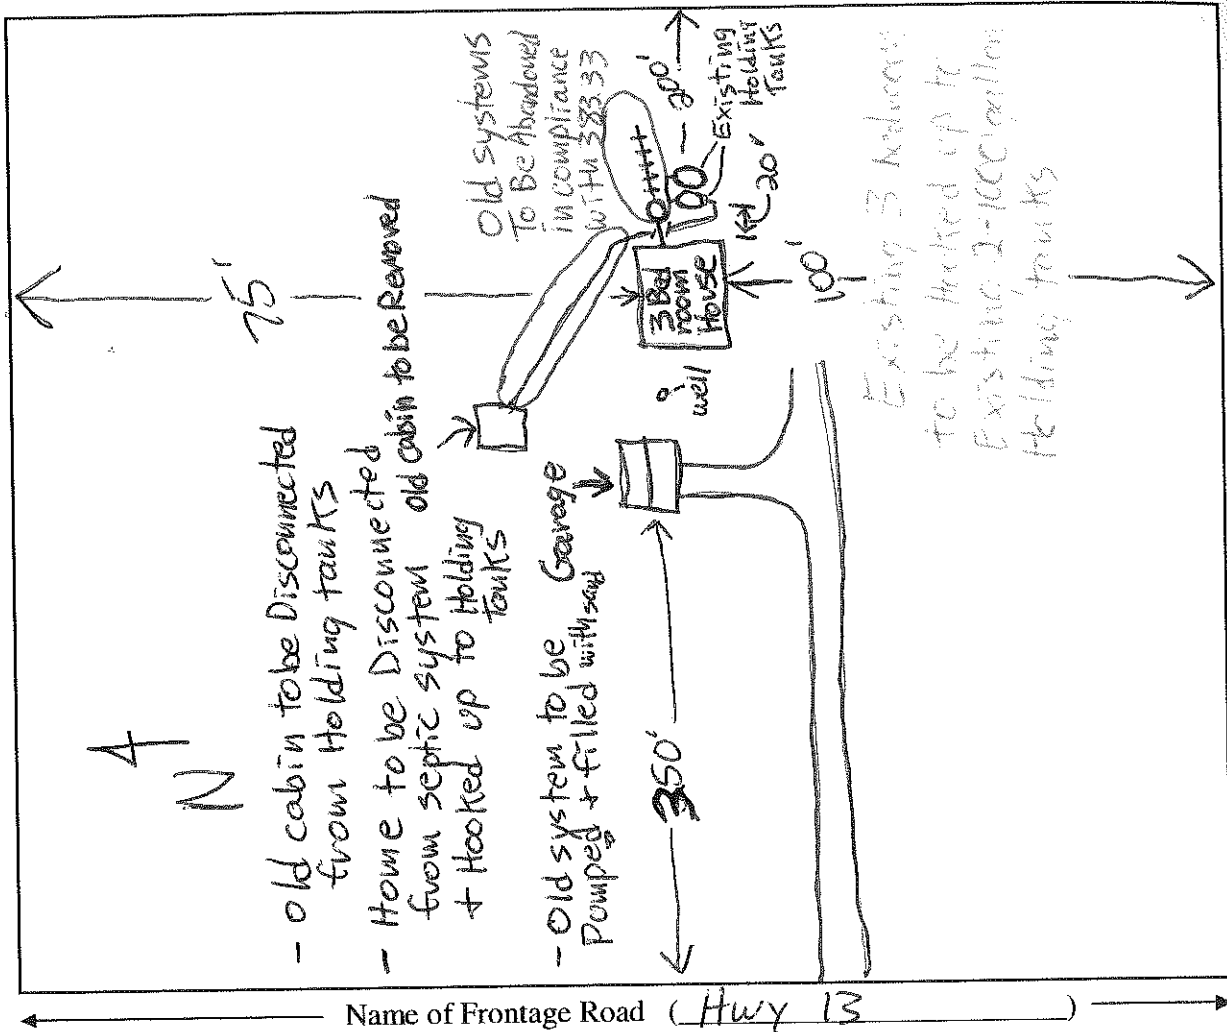 N
- old cabin to be Disconnected
from Holding tanks
- Home to be Disconnected
from septic system
+ Hooked up to Holding
Tanks
- old system to be
Pumped + filled with sand
old cabin to be Removed
Garage
350'
75'
well
3 Bed
room
House
100'
20'
Old systems
To Be Abandoned
in compliance
with 383.33
200'
Existing
Holding
Tanks
Existing 3 bedroom
to be hooked up to
Existing 2-1000 gallon
Holding tanks
Name of Frontage Road ( Hwy 13 )